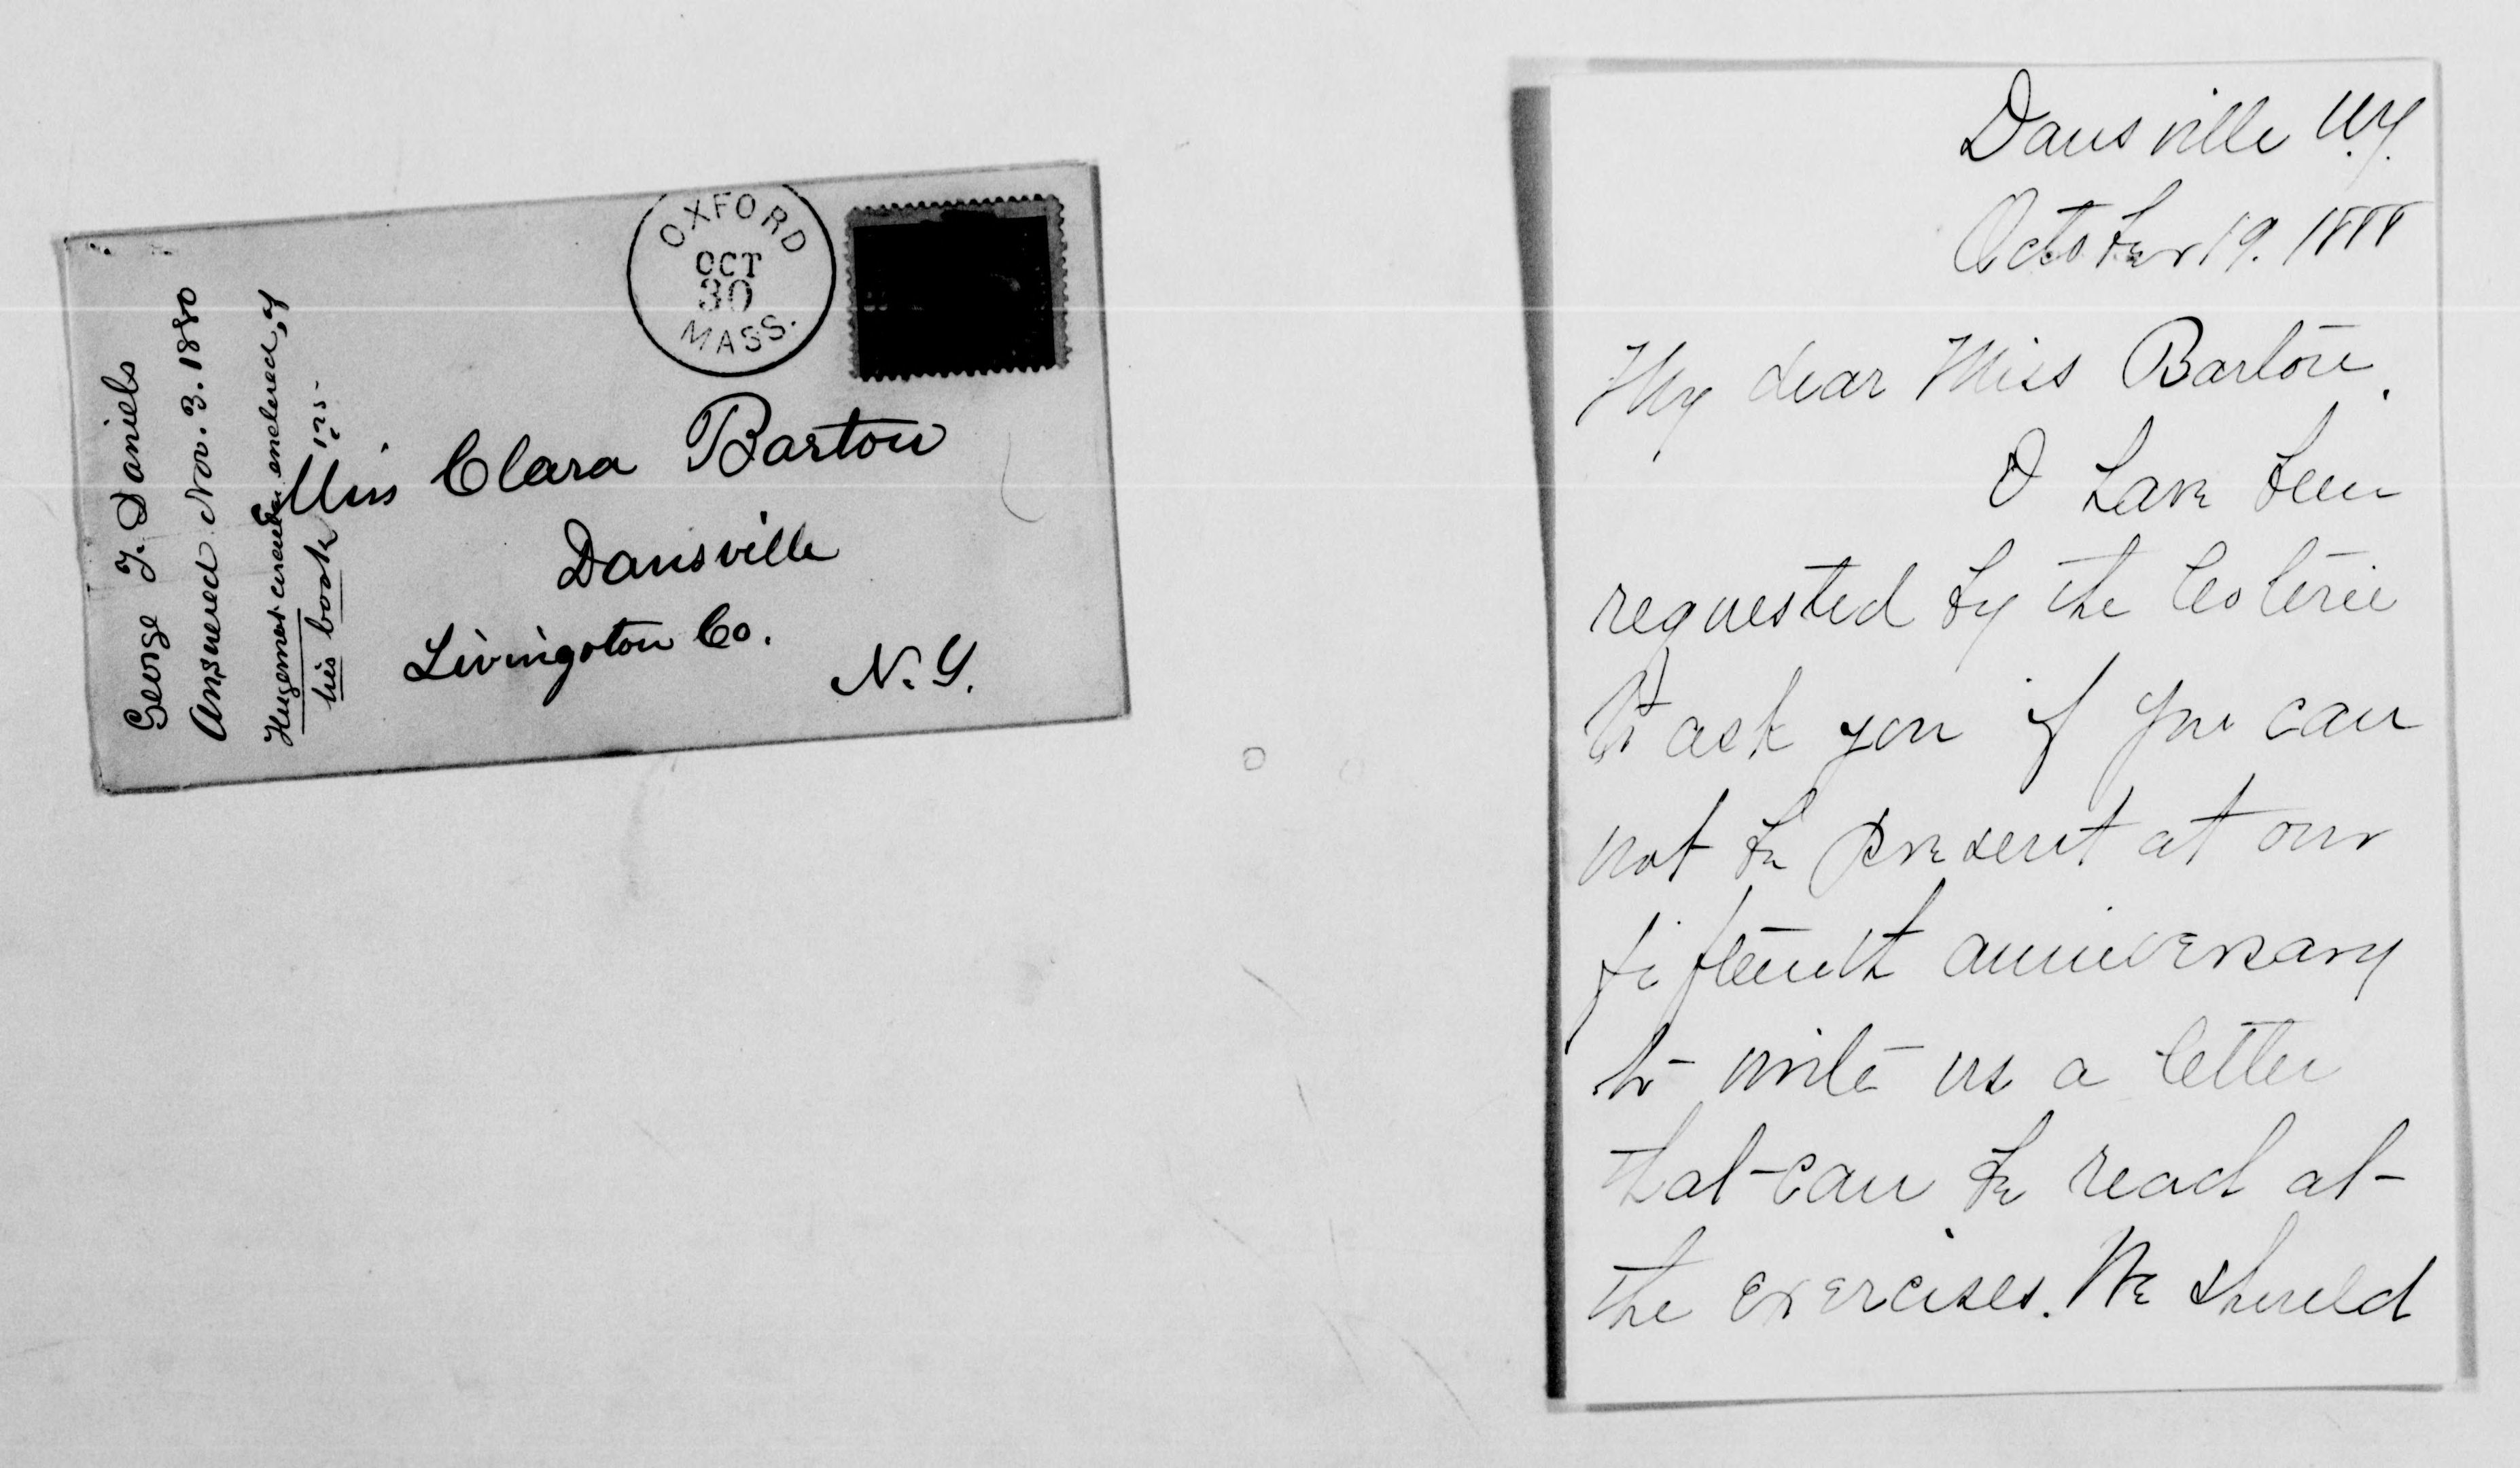 George F. Daniels
Answered Nov. 3. 1880
Hugenot circular enclosed, of
his book 125-
OXFORD
OCT
30
MASS.
Miss Clara Barton
Dansville
Livingston Co.
N. Y.
Dansville N.Y.
October 19. 1888
My dear Miss Barton.
I have been
requested by the Coterie
to ask you if you can
not be present at our
fifteenth anniversary
to write us a letter
that can be read at
the exercises. We should